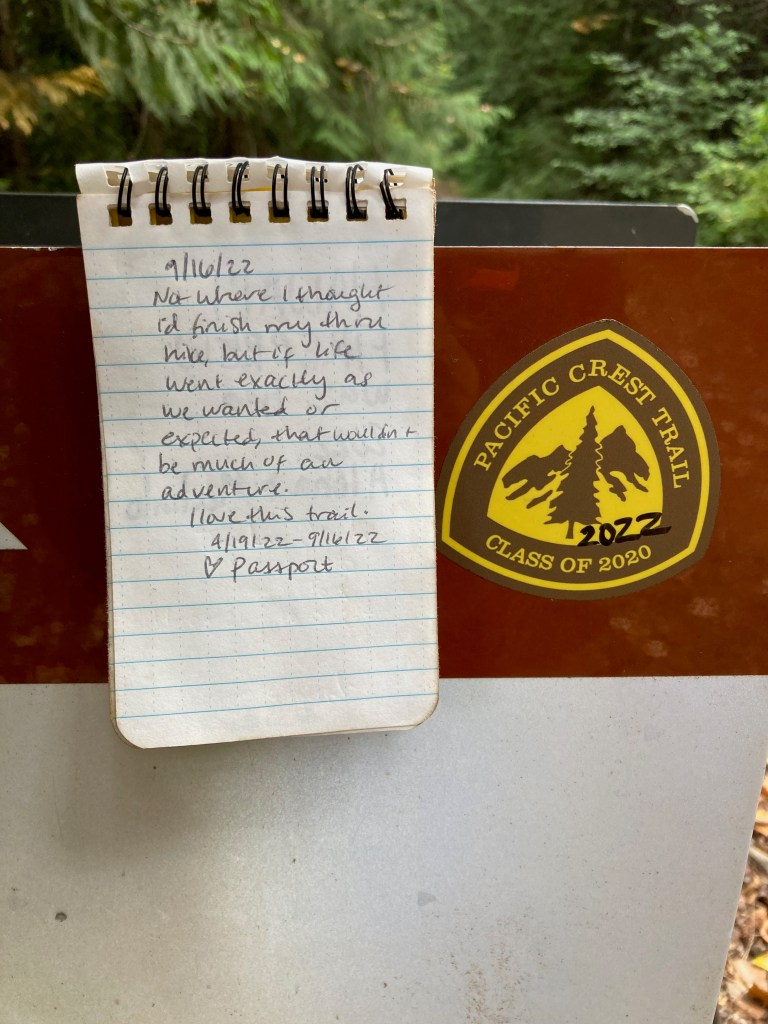 9/16/22
Not where I thought
I'd finish my thru
hike, but if life
went exactly as
we wanted or
expected, that wouldn't
be much of an
adventure.
I love this trail.
4/19/22 - 9/16/22
♡ Passport
PACIFIC CREST TRAIL
2022
CLASS OF 2020